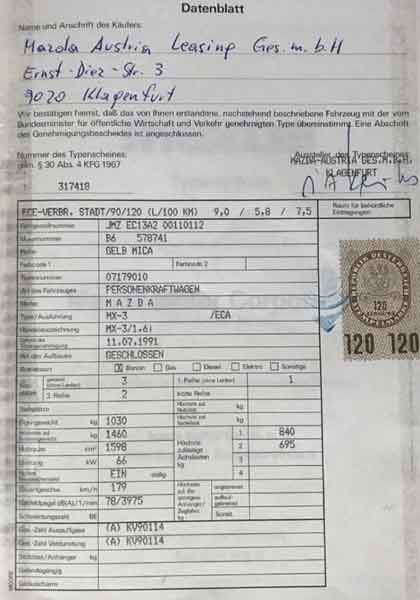 Datenblatt
Name und Anschrift des Käufers:
Mazda Austria Leasing Ges.m.b.H
Ernst-Diez-Str. 3
9020 Klagenfurt
Wir bestätigen hiermit, daß das von Ihnen erstandene, nachstehend beschriebene Fahrzeug mit der vom
Bundesminister für öffentliche Wirtschaft und Verkehr genehmigten Type übereinstimmt. Eine Abschrift
des Genehmigungsbescheides ist angeschlossen.
Nummer des Typenscheines:
gem. § 30 Abs. 4 KFG 1967
317418
Aussteller des Typenscheines:
MAZDA-AUSTRIA GES.M.B.H.
KLAGENFURT
ECE-VERBR. STADT/90/120 (L/100 KM) 9,0 / 5,8 / 7,5
Raum für behördliche
Eintragungen:
Fahrgestellnummer JMZ EC13A2 00110112
Motornummer B6 578741
Farbe GELB MICA
Farbcode 1 Farbcode 2
Typennummer 07179010
Art des Fahrzeuges PERSONENKRAFTWAGEN
Marke MAZDA
Type/Ausführung MX-3 /ECA
Handelsbezeichnung MX-3/1.6i
11.07.1991
Art des Aufbaues GESCHLOSSEN
Antriebsart X Benzin Gas Diesel Elektro Sonstige
3 1. Reihe (ohne Lenker) 1
2. Reihe 2 kg
Eigengewicht kg 1030
kg 1460 1 840
Hubraum cm³ 1598 Höchste zulässige Achslasten kg 2 695
Leistung kW 66 3
EIN 4
Bauartgeschw. km/h 179
78/3975
Ges.-Zahl Auspuffgase (A) KV90114
Ges.-Zahl Verdunstung (A) KV90114
Stützlast/Anhänger kg
Geländegängig
Geräuscharm
120
120 120